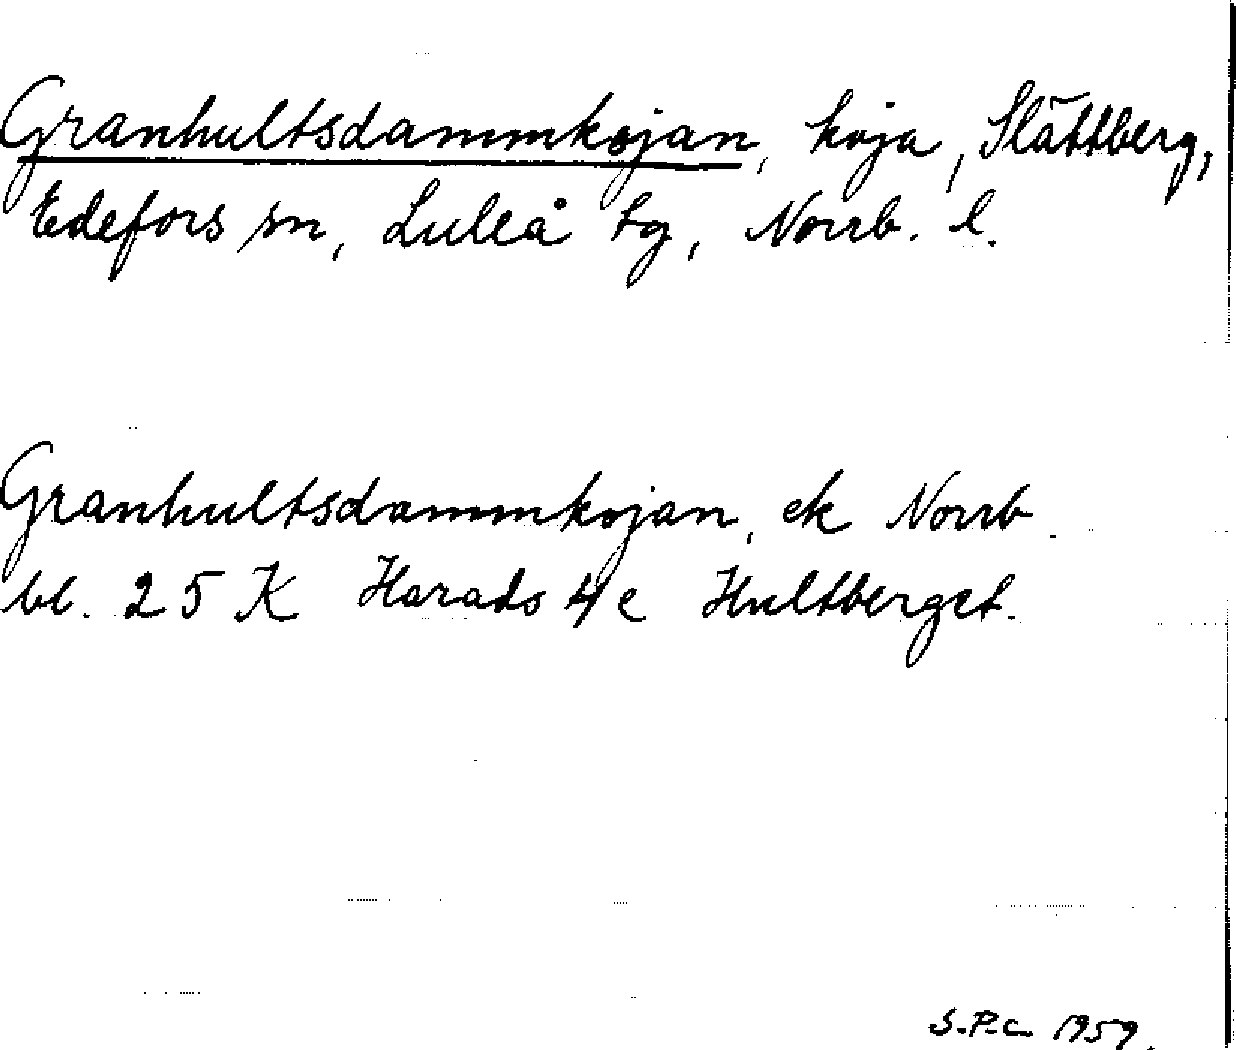 Granhultsdammkojan, koja, Slättberg,
Edefors sn, Luleå tg, Norrb. l.
Granhultsdammkojan, ek Norrb.
bl. 25 K Harads 4e Hultberget.
S.P.C. 1959.